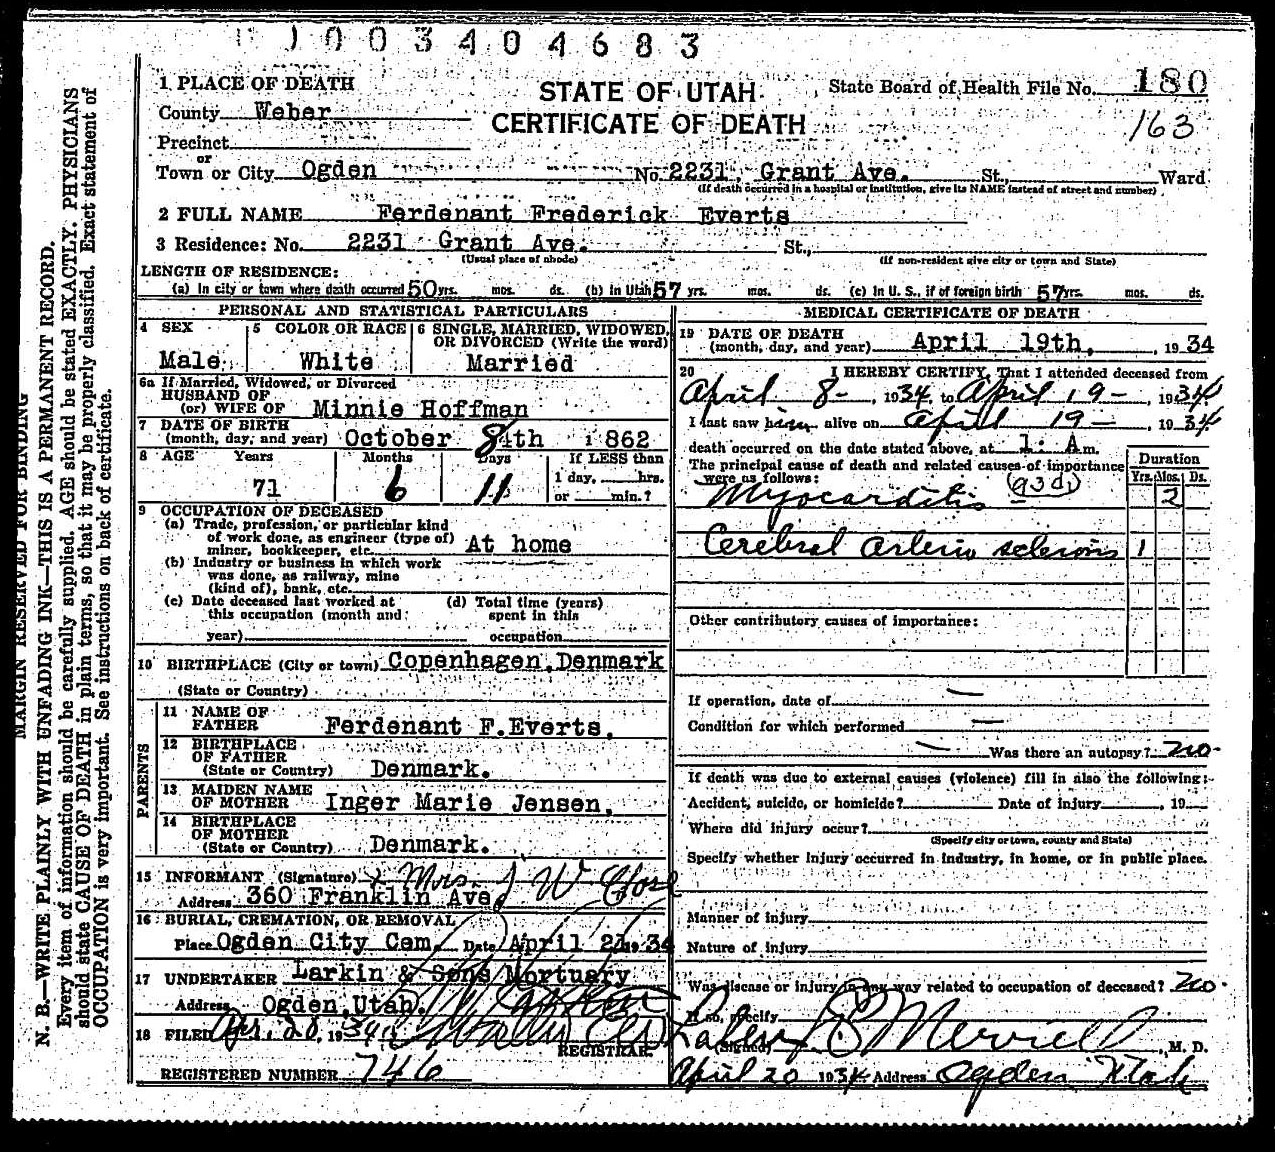 1003404683
1 PLACE OF DEATH
County Weber
Precinct
or
Town or City Ogden No. 2231 Grant Ave. St., Ward
(If death occurred in a hospital or institution, give its NAME instead of street and number)
STATE OF UTAH
CERTIFICATE OF DEATH
State Board of Health File No. 180
163
2 FULL NAME Ferdenant Frederick Everts
3 Residence: No. 2231 Grant Ave. St.,
(Usual place of abode) (If non-resident give city or town and State)
LENGTH OF RESIDENCE:
(a) In city or town where death occurred 50 yrs. mos. ds. (b) In Utah 57 yrs. mos. ds. (c) In U. S., if of foreign birth 57 yrs. mos. ds.
PERSONAL AND STATISTICAL PARTICULARS
4 SEX
Male
5 COLOR OR RACE
White
6 SINGLE, MARRIED, WIDOWED, OR DIVORCED (Write the word)
Married
6a If Married, Widowed, or Divorced
HUSBAND OF
(or) WIFE OF Minnie Hoffman
7 DATE OF BIRTH
(month, day, and year) October 8th 1862
8 AGE Years Months Days If LESS than
71 6 11 1 day, hrs.
or min.?
9 OCCUPATION OF DECEASED
(a) Trade, profession, or particular kind
of work done, as engineer (type of)
miner, bookkeeper, etc. At home
(b) Industry or business in which work
was done, as railway, mine
(kind of), bank, etc.
(c) Date deceased last worked at (d) Total time (years)
this occupation (month and spent in this
year) occupation
10 BIRTHPLACE (City or town) Copenhagen, Denmark
(State or Country)
PARENTS
11 NAME OF
FATHER Ferdenant F. Everts.
12 BIRTHPLACE
OF FATHER
(State or Country) Denmark.
13 MAIDEN NAME
OF MOTHER Inger Marie Jensen.
14 BIRTHPLACE
OF MOTHER
(State or Country) Denmark.
15 INFORMANT (Signature) x Mrs. J W
Address 360 Franklin Ave.
16 BURIAL, CREMATION, OR REMOVAL
Place Ogden City Cem. Date April 21 1934
17 UNDERTAKER Larkin & Sons Mortuary
Address Ogden, Utah.
18 FILED Apr. 20, 1934
REGISTRAR
REGISTERED NUMBER 746
MEDICAL CERTIFICATE OF DEATH
19 DATE OF DEATH
(month, day, and year) April 19th, , 1934
20 I HEREBY CERTIFY, That I attended deceased from
April 8- , 1934, to April 19- , 1934
I last saw him alive on April 19- , 1934
death occurred on the date stated above, at 1: A m.
The principal cause of death and related causes of importance
were as follows: (93d)
Duration
Yrs. Mos. Ds.
Myocarditis 2
Cerebral arterio sclerosis 1
Other contributory causes of importance:
If operation, date of —
Condition for which performed —
— Was there an autopsy? no.
If death was due to external causes (violence) fill in also the following:-
Accident, suicide, or homicide? Date of injury , 19
Where did injury occur?
(Specify city or town, county and State)
Specify whether injury occurred in industry, in home, or in public place.
Manner of injury
Nature of injury
Was disease or injury in any way related to occupation of deceased? no.
If so, specify
(Signed) E Merrill , M. D.
April 20 1934 Address Ogden Utah
MARGIN RESERVED FOR BINDING
N. B.—WRITE PLAINLY WITH UNFADING INK—THIS IS A PERMANENT RECORD.
Every item of information should be carefully supplied. AGE should be stated EXACTLY. PHYSICIANS
should state CAUSE OF DEATH in plain terms, so that it may be properly classified. Exact statement of
OCCUPATION is very important. See instructions on back of certificate.